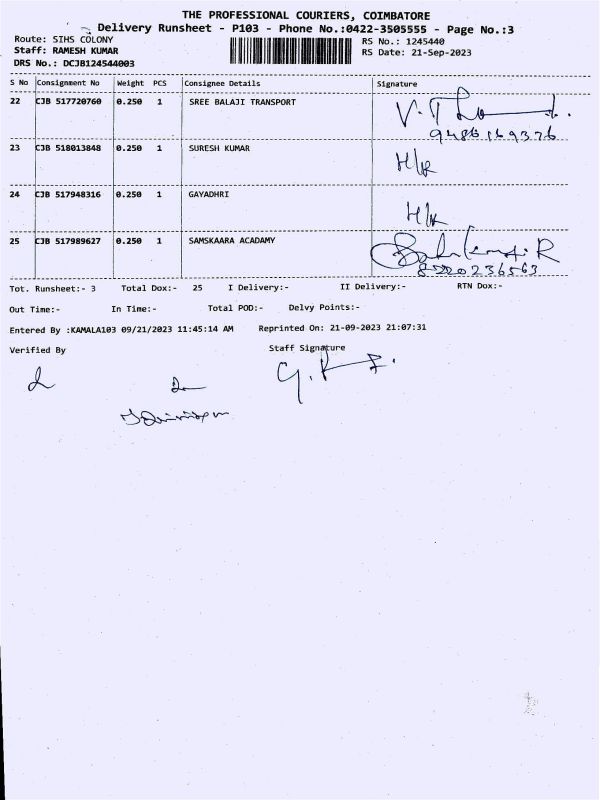 THE PROFESSIONAL COURIERS, COIMBATORE
Delivery Runsheet - P103 - Phone No.:0422-3505555 - Page No.:3
Route: SIHS COLONY RS No.: 1245440
Staff: RAMESH KUMAR RS Date: 21-Sep-2023
DRS No.: DCJB124544003
S No Consignment No Weight PCS Consignee Details Signature
22 CJB 517720760 0.250 1 SREE BALAJI TRANSPORT
9486169376
23 CJB 518013848 0.250 1 SURESH KUMAR H/K
24 CJB 517948316 0.250 1 GAYADHRI H/K
25 CJB 517989627 0.250 1 SAMSKAARA ACADAMY
8220236563
Tot. Runsheet:- 3 Total Dox:- 25 I Delivery:- II Delivery:- RTN Dox:-
Out Time:- In Time:- Total POD:- Delvy Points:-
Entered By :KAMALA103 09/21/2023 11:45:14 AM Reprinted On: 21-09-2023 21:07:31
Verified By Staff Signature